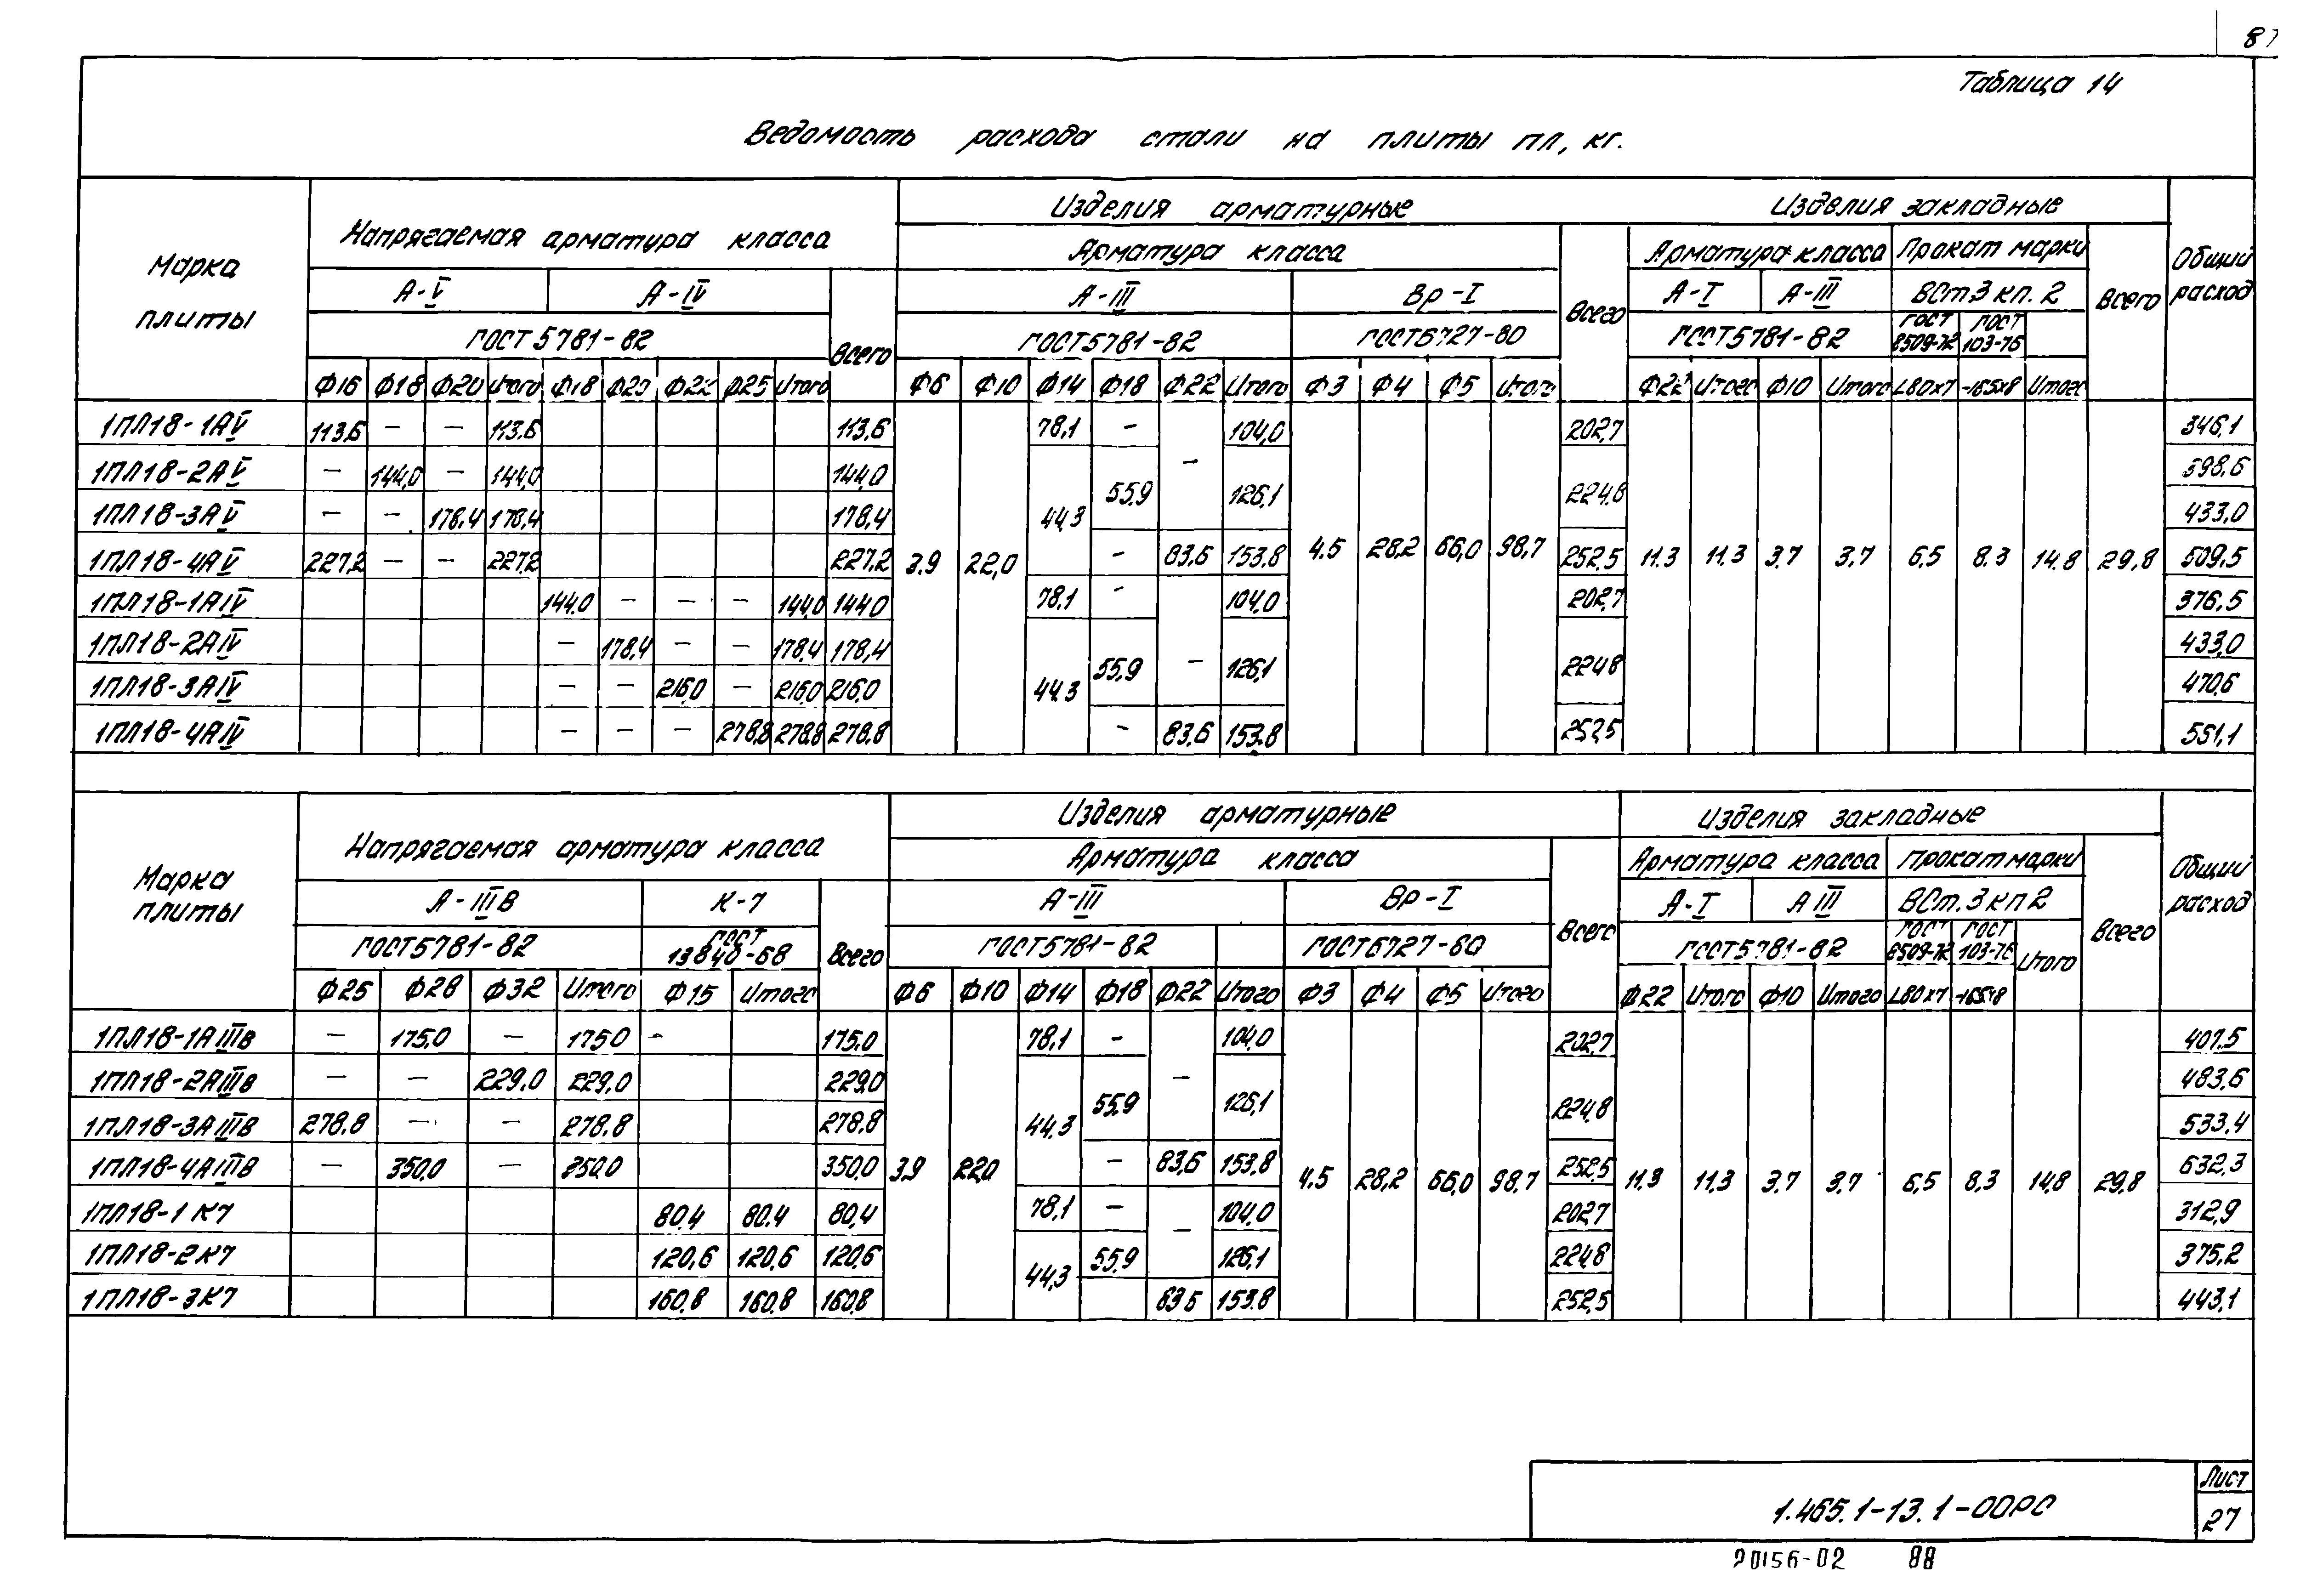 87
Таблица 14
Ведомость расхода стали на плиты пл, кг.
Марка плиты
Напрягаемая арматура класса
Изделия арматурные
Изделия закладные
Общий расход
Арматура класса
Всего
Арматура класса
Прокат марки
Всего
А-V А-IV
Всего
А-III Вр-I
А-I А-III
ВСт3 кп. 2
ГОСТ 5781-82
ГОСТ 5781-82
ГОСТ 6727-80
ГОСТ 5781-82
ГОСТ 8509-72
ГОСТ 103-76
Ф16 Ф18 Ф20 Итого Ф18 Ф20 Ф22 Ф25 Итого Ф6 Ф10 Ф14 Ф18 Ф22 Итого Ф3 Ф4 Ф5 Итого Ф22 Итого Ф10 Итого L80х7 -165х8 Итого
1ПЛ18-1АV 113,6 — — 113,6 113,6 78,1 — 104,0 202,7 346,1
1ПЛ18-2АV — 144,0 — 144,0 144,0 — 398,6
44,3 55,9 126,1 224,8
1ПЛ18-3АV — — 178,4 178,4 178,4 433,0
1ПЛ18-4АV 227,2 — — 227,2 227,2 3,9 22,0 — 83,6 153,8 4.5 28,2 66,0 98,7 252,5 11.3 11.3 3.7 3,7 6,5 8.3 14.8 29,8 509,5
1ПЛ18-1АIV 144.0 — — — 144,0 144,0 78,1 — 104,0 202,7 376,5
1ПЛ18-2АIV — 178,4 — — 178,4 178,4 433,0
44,3 55,9 — 126,1 224,8
1ПЛ18-3АIV — — 216,0 — 216,0 216,0 470,6
1ПЛ18-4АIV — — — 278,8 278,8 278,8 — 83,6 153,8 252,5 551,1
Марка плиты
Напрягаемая арматура класса
Изделия арматурные
Изделия закладные
Общий расход
Арматура класса
Всего
Арматура класса
Прокат марки
Всего
А-IIIВ К-7
Всего
А-III Вр-I
А-I А III
ВСт. 3 кп 2
ГОСТ 5781-82
ГОСТ 13840-68
ГОСТ 5781-82
ГОСТ 6727-80
ГОСТ 5781-82
ГОСТ 8509-72
ГОСТ 103-76
Итого
Ф25 Ф28 Ф32 Итого Ф15 Итого Ф6 Ф10 Ф14 Ф18 Ф22 Итого Ф3 Ф4 Ф5 Итого Ф22 Итого Ф10 Итого L80х7 -165х8
1ПЛ18-1АIIIв — 175,0 — 175,0 — 175,0 78,1 — 104,0 202,7 407,5
1ПЛ18-2АIIIв — — 229,0 229,0 229,0 — 483,6
44,3 55,9 126,1 224,8
1ПЛ18-3АIIIВ 278,8 — — 278,8 278,8 533,4
1ПЛ18-4АIIIВ — 350,0 — 350,0 350,0 3,9 22,0 — 83,6 153,8 4.5 28,2 66,0 98,7 252,5 11,3 11,3 3,7 3,7 6,5 8,3 14,8 29,8 632,3
1ПЛ18-1 К7 80,4 80,4 80,4 78,1 — — 104,0 202,7 312,9
1ПЛ18-2К7 120,6 120,6 120,6 44,3 55,9 126,1 224,8 375,2
1ПЛ18-3К7 160,8 160,8 160,8 83,6 153,8 252,5 443,1
1.465.1-13.1-00РС
Лист
27
20156-02 88